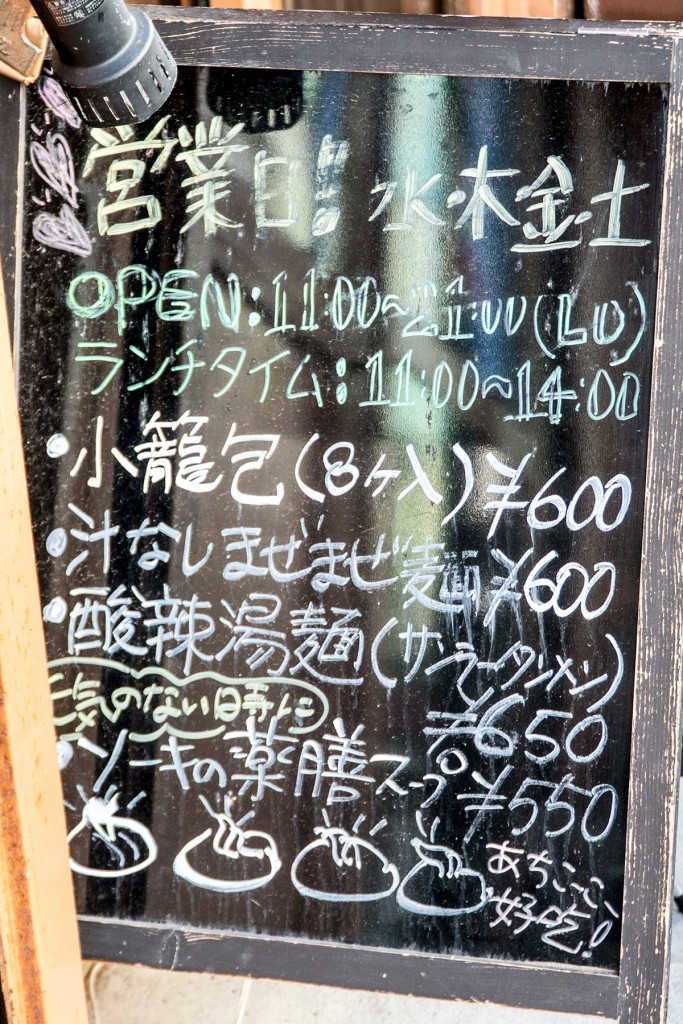 営業日!! 水・木・金・土
OPEN:11:00~21:00(LO)
ランチタイム:11:00~14:00
・小籠包(8ヶ入)¥600
・汁なしまぜまぜ麺¥600
・酸辣湯麺(サンラータンメン)
¥650
元気のない時に
・ソーキの薬膳スープ¥550
あちこーこー
好吃!